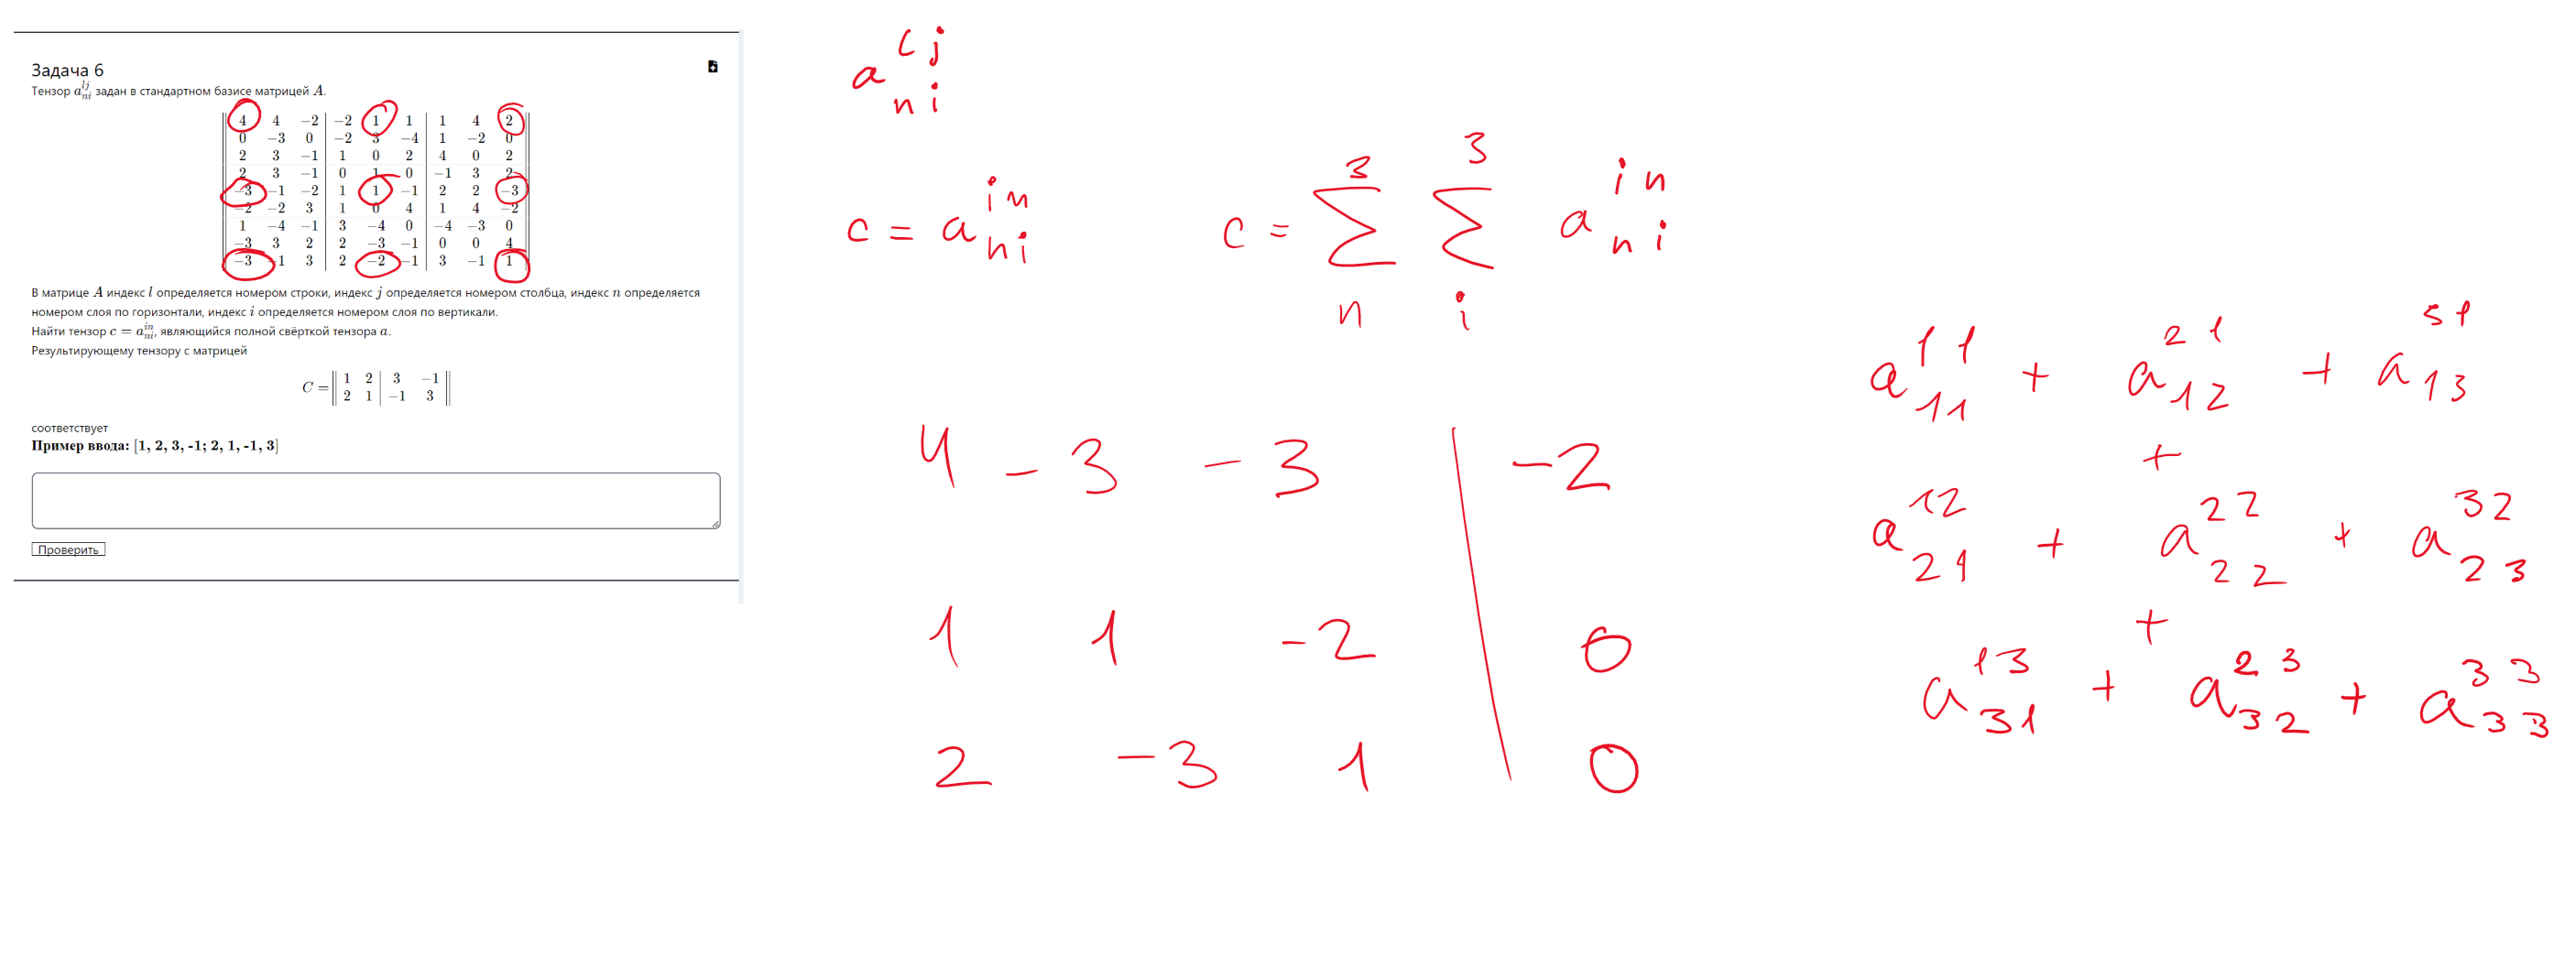 Задача 6
Тензор a^{lj}_{ni} задан в стандартном базисе матрицей A.
4 4 −2 | −2 1 1 | 1 4 2
0 −3 0 | −2 3 −4 | 1 −2 0
2 3 −1 | 1 0 2 | 4 0 2
2 3 −1 | 0 1 0 | −1 3 2
−3 −1 −2 | 1 1 −1 | 2 2 −3
−2 −2 3 | 1 0 4 | 1 4 −2
1 −4 −1 | 3 −4 0 | −4 −3 0
−3 3 2 | 2 −3 −1 | 0 0 4
−3 −1 3 | 2 −2 −1 | 3 −1 1
В матрице A индекс l определяется номером строки, индекс j определяется номером столбца, индекс n определяется
номером слоя по горизонтали, индекс i определяется номером слоя по вертикали.
Найти тензор c = a^{in}_{ni}, являющийся полной свёрткой тензора a.
Результирующему тензору с матрицей
C = ‖ 1 2 | 3 −1 ‖
‖ 2 1 | −1 3 ‖
соответствует
Пример ввода: [1, 2, 3, -1; 2, 1, -1, 3]
Проверить
a^{cj}_{ni}
c = a^{in}_{ni}
c = ∑^{3}_{n} ∑^{3}_{i} a^{in}_{ni}
4 − 3 − 3 | −2
1 1 −2 | 0
2 −3 1 | 0
a^{11}_{11} + a^{21}_{12} + a^{31}_{13}
+
a^{12}_{21} + a^{22}_{22} + a^{32}_{23}
+
a^{13}_{31} + a^{23}_{32} + a^{33}_{33}